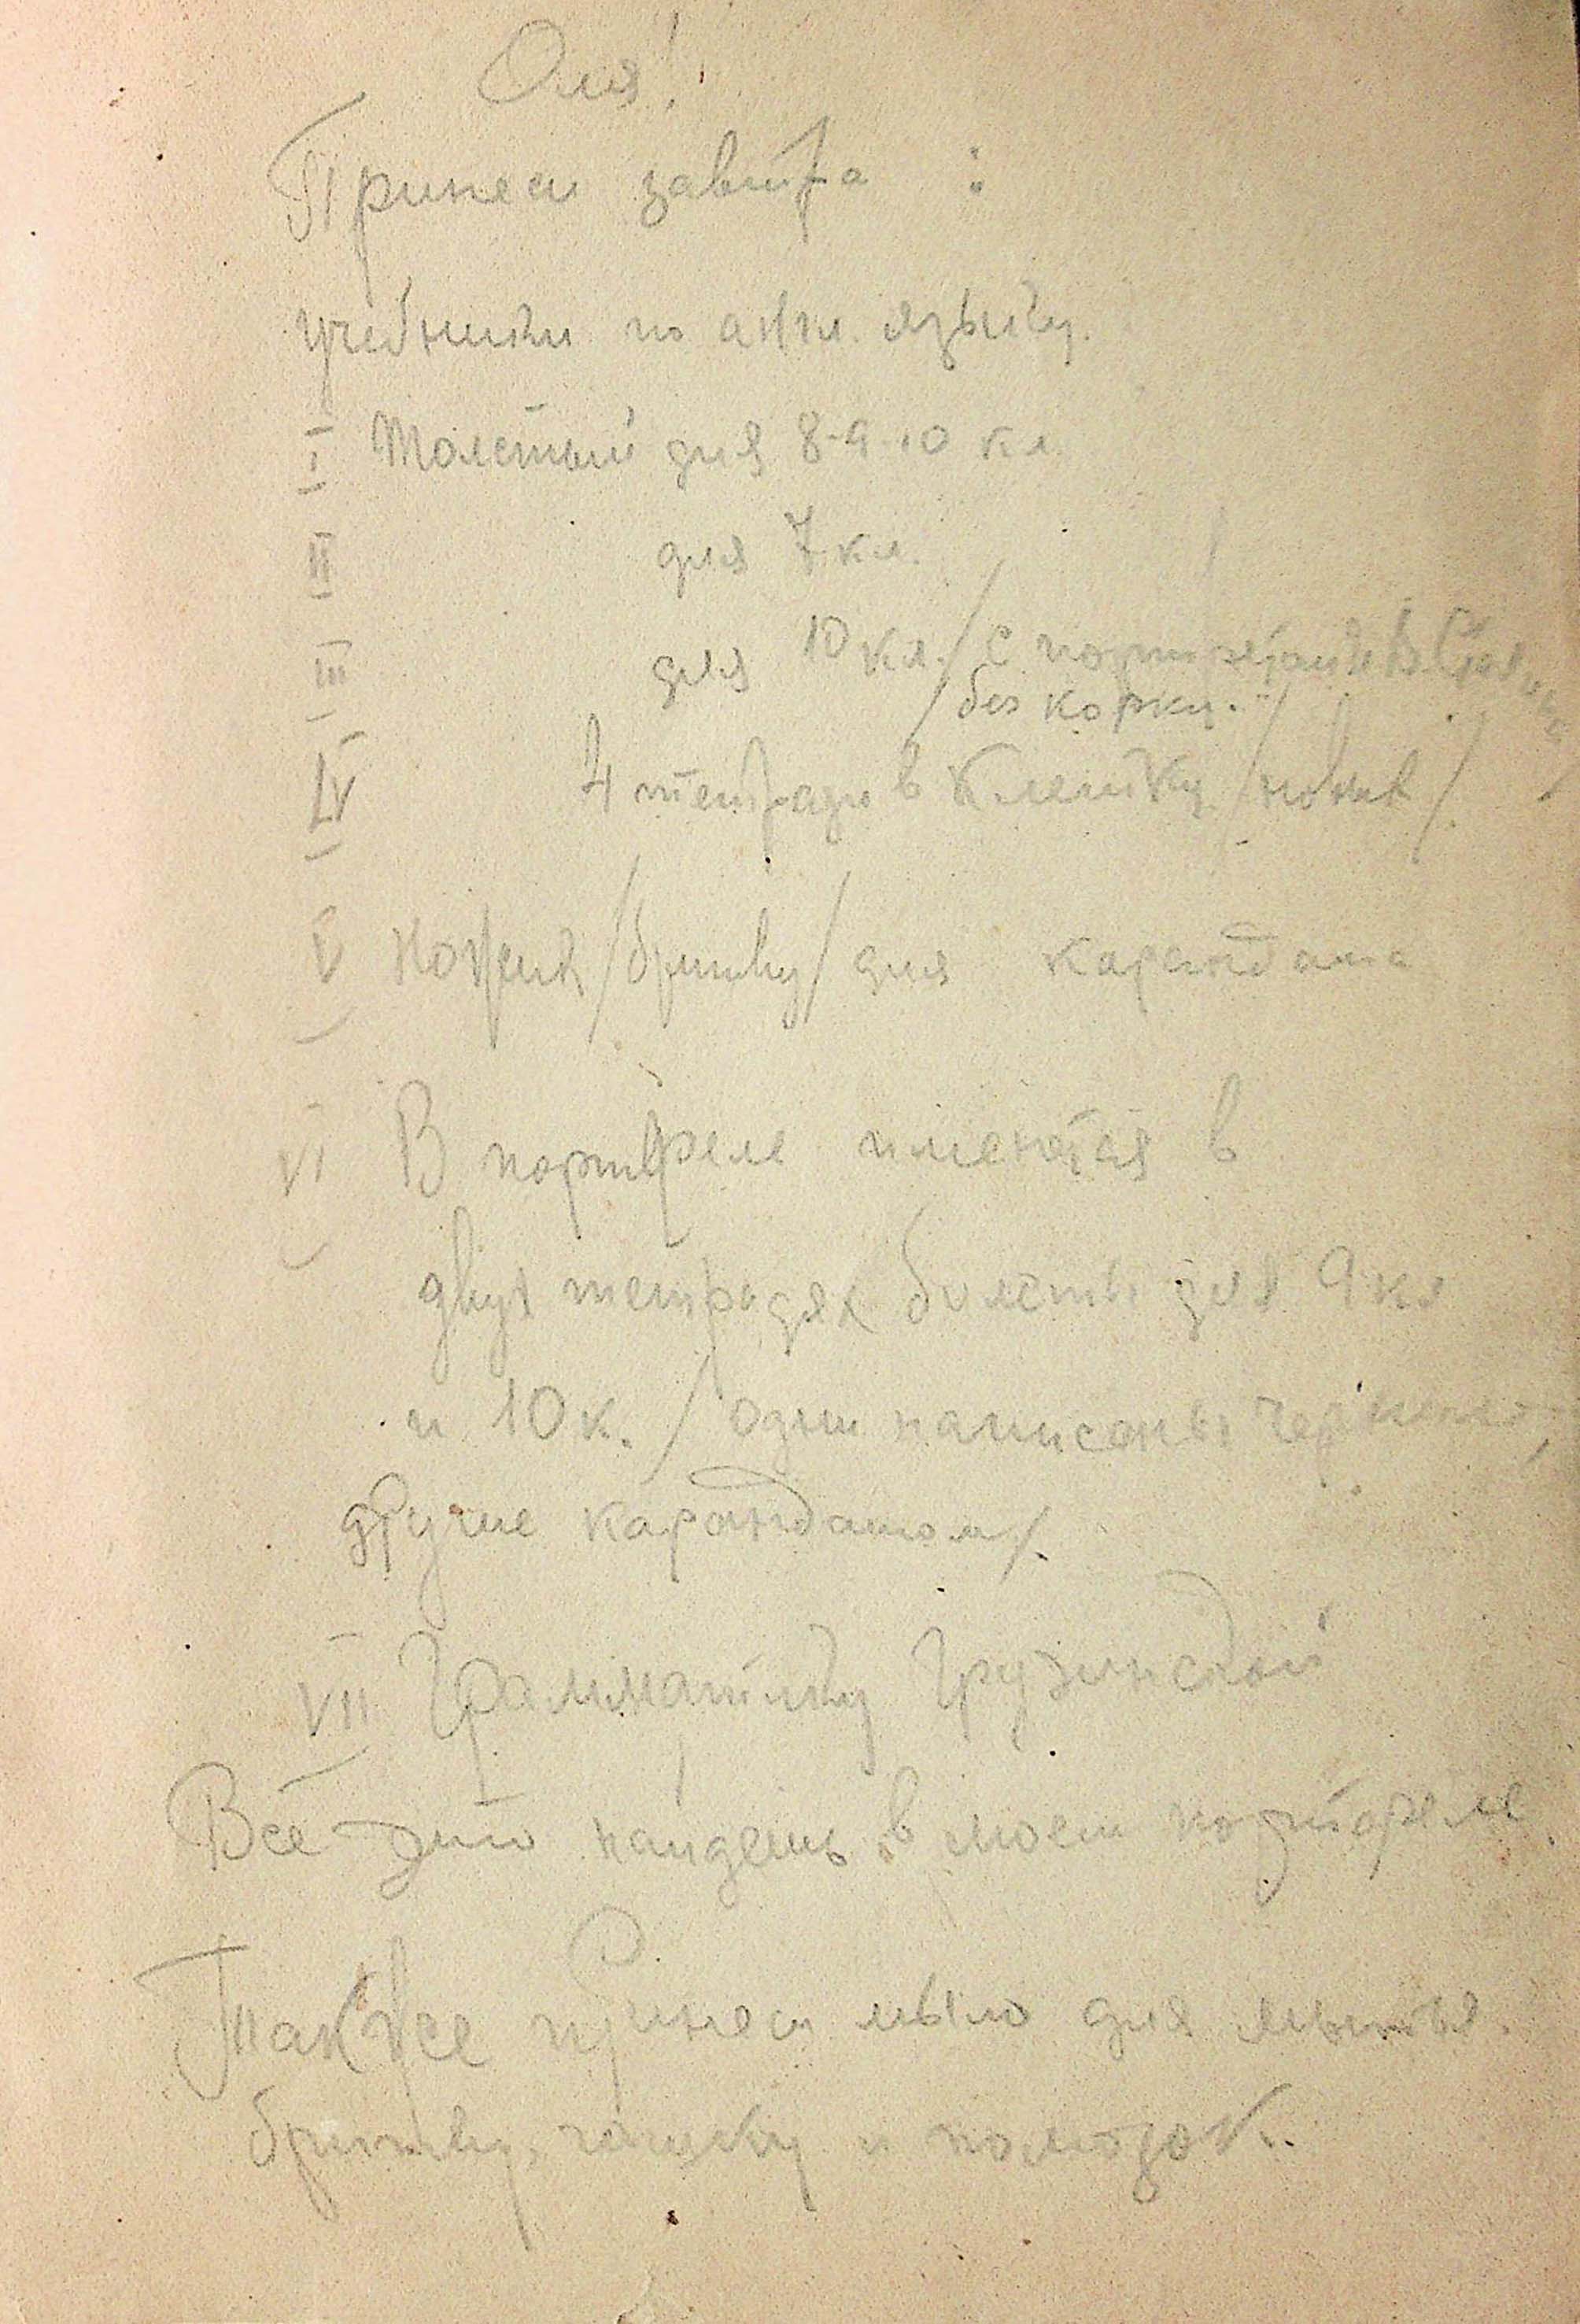 Оля!
Принеси завтра :
учебники по англ. языку.
I Толстый для 8-9-10 кл.
II для 7 кл.
III для 10 кл. / с портретом Сталина /
/ без корки.
IV 4 тетради в клетку / новые /
V Ножик / бритву / для карандаша
VI В портфеле имеются в
двух тетрадях билеты для 9 кл
и 10 к. / одни написаны чернилом,
другие карандашом /.
VII Грамматику Грузинской
Всё это найдешь в моем портфеле.
Также принеси мыло для мытья.
бритву, чашку и помазок.